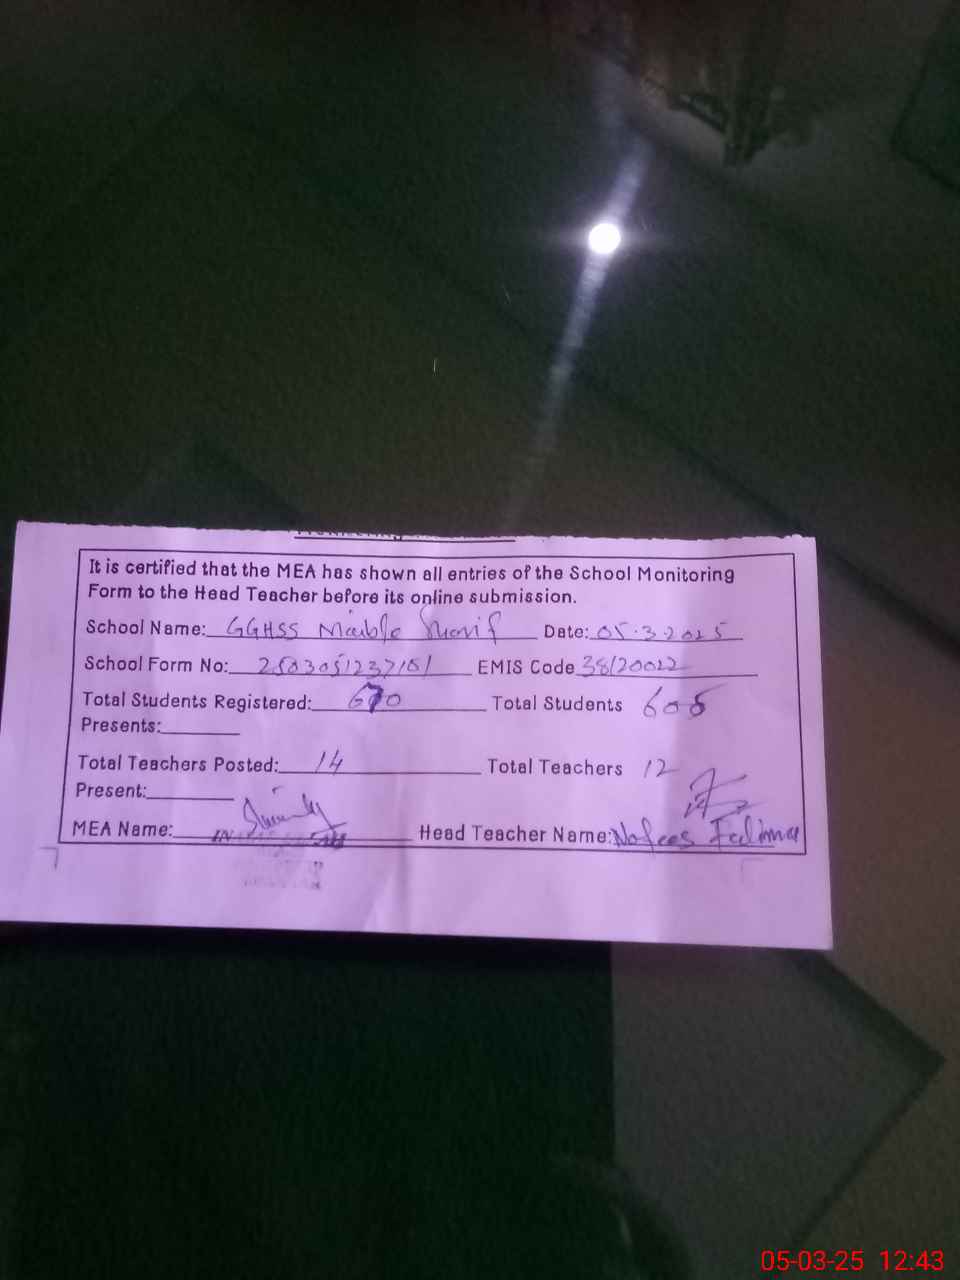 It is certified that the MEA has shown all entries of the School Monitoring
Form to the Head Teacher before its online submission.
School Name: GGHSS Sharif Date: 05.3.2025
School Form No: EMIS Code 38120022
Total Students Registered: 670 Total Students 605
Presents:
Total Teachers Posted: 14 Total Teachers 12
Present:
MEA Name: Head Teacher Name: Nafees Fatima
05-03-25 12:43